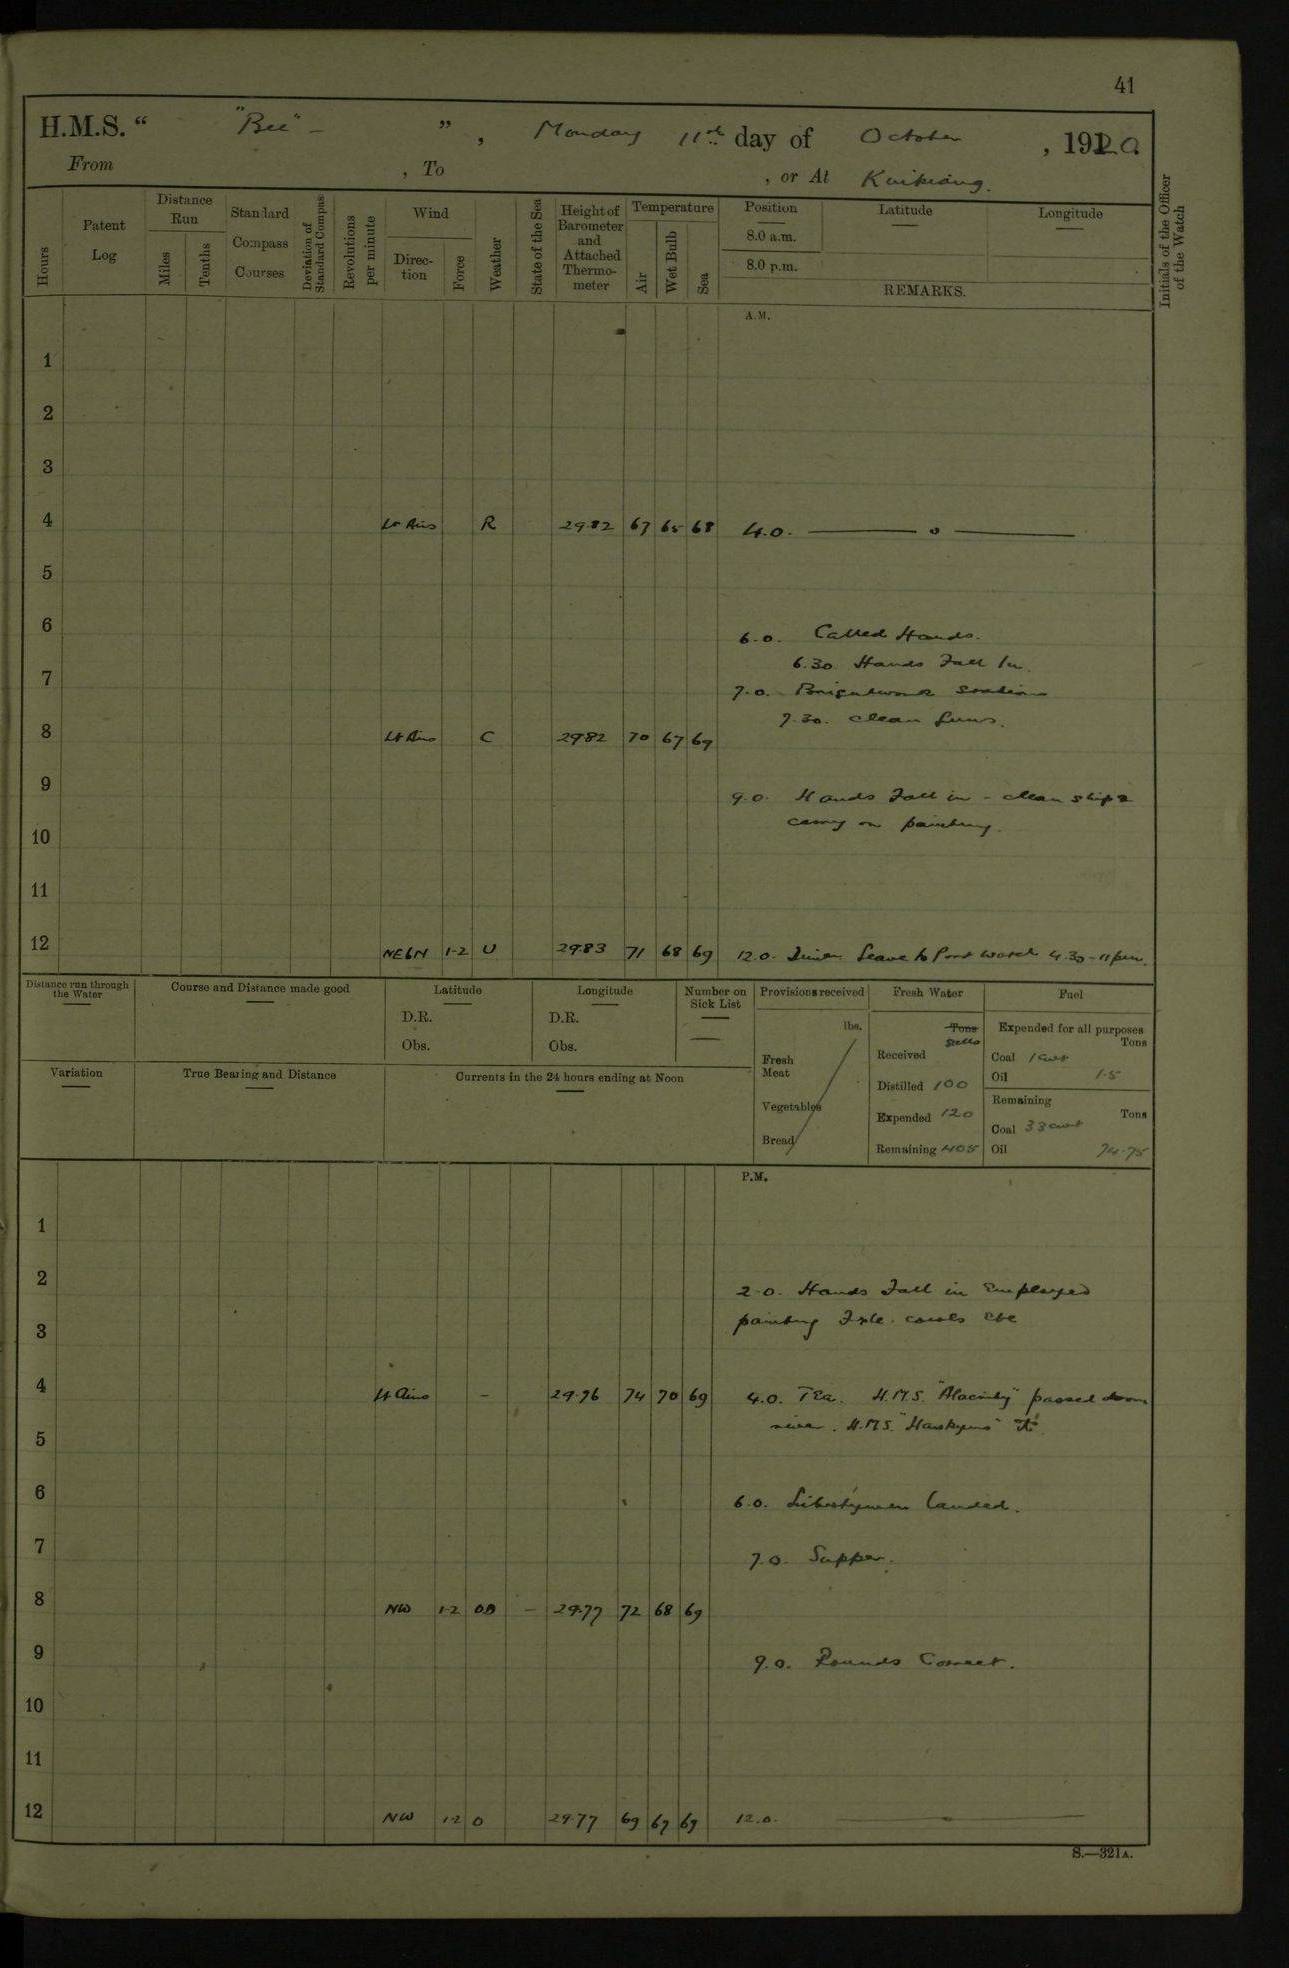 41
H.M.S. “ "Bee" – ” , Monday 11th day of October , 1920.
From , To , or At Kiukiang.
Hours
Patent Log
Distance Run
Miles
Tenths
Standard Compass Courses
Deviation of Standard Compass
Revolutions per minute
Wind
Direction
Force
Weather
State of the Sea
Height of Barometer and Attached Thermometer
Temperature
Air
Wet Bulb
Sea
Position
8.0 a.m.
8.0 p.m.
Latitude
Longitude
REMARKS.
Initials of the Officer of the Watch
A.M.
1
2
3
4 Lt Airs R 29.82 67 65 68 4.0.
5
6 6.0. Called Hands.
6.30. Hands Fall In.
7 7.0. Brightwork Stations
7.30. Clean Guns.
8 Lt Airs C 29.82 70 67 69
9 9.0. Hands Fall in - clean ship &
carry on painting.
10
11
12 NEbN 1-2 U 29.83 71 68 69 12.0. Dinner Leave to Port Watch 4.30 - 11 pm.
Distance run through the Water
Course and Distance made good
Latitude
D.R.
Obs.
Longitude
D.R.
Obs.
Number on Sick List
—
Provisions received
lbs.
Fresh Meat
Vegetables
Bread
Fresh Water
Tons
Received
Distilled 100
Expended 120
Remaining 405
Fuel
Expended for all purposes
Tons
Coal 1 cwt
Oil 1.5
Remaining
Tons
Coal 33 cwt
Oil 74.75
Variation
True Bearing and Distance
Currents in the 24 hours ending at Noon
P.M.
1
2 2.0. Hands Fall in Employed
painting Fxle. cowls etc
3
4 Lt Airs - 29.76 74 70 69 4.0. Tea. H.M.S. "Alacrity" passed down
river. H.M.S. "Hawkyns"
5
6 6.0. Libertymen landed.
7 7.0. Supper.
8 NW 1-2 OB - 29.77 72 68 69
9 9.0. Rounds Correct.
10
11
12 NW 1-2 O 29.77 69 67 69 12.0.
S.—321A.